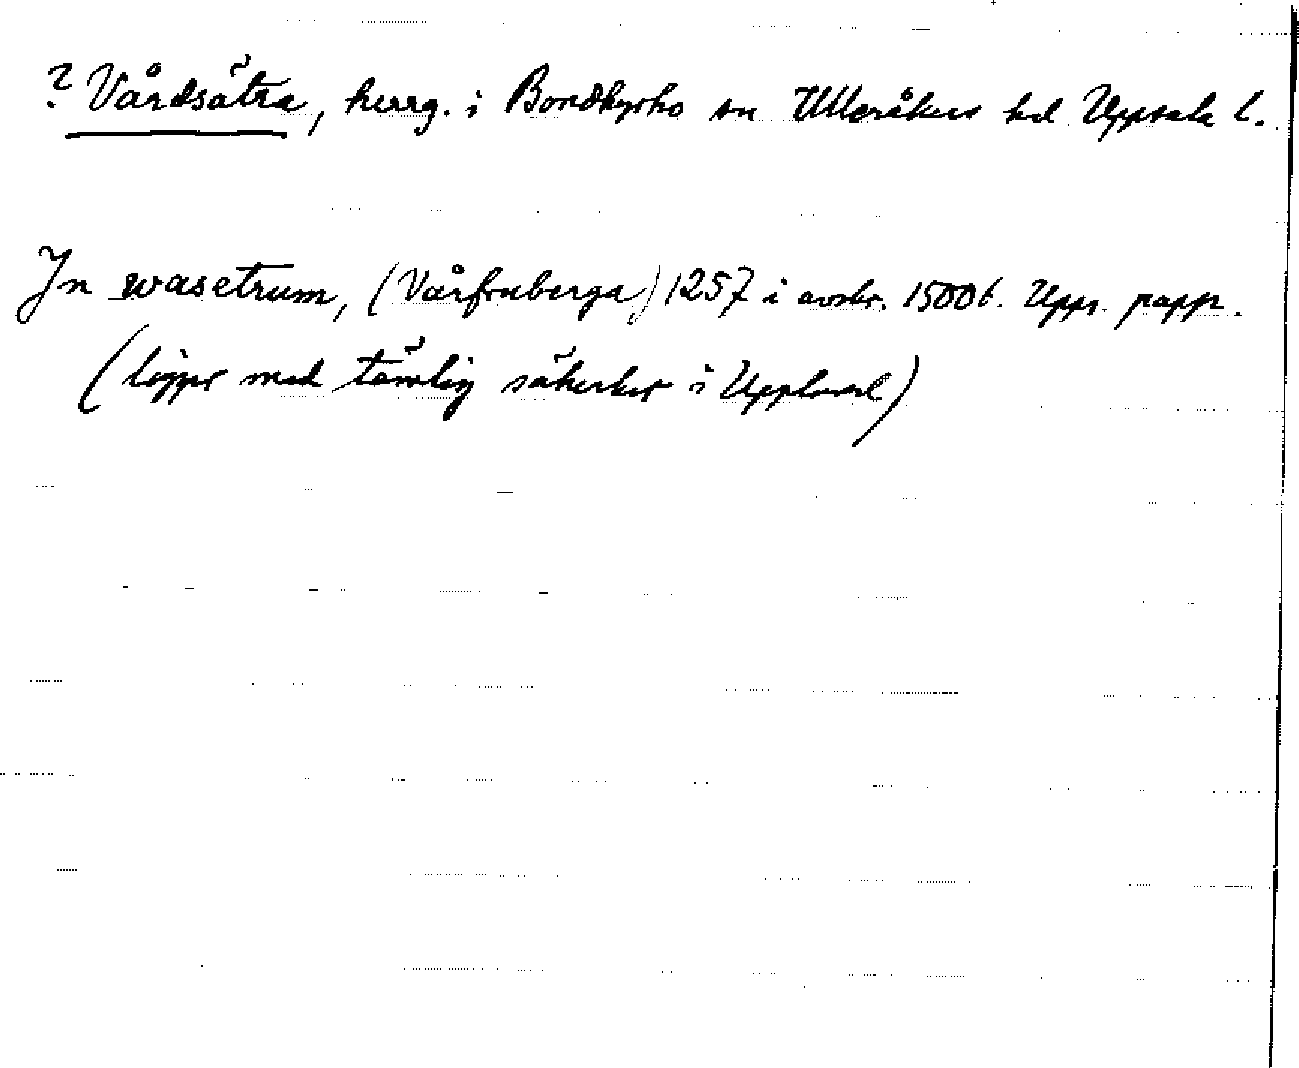 ? Vårdsätra, herrg. i Bondkyrko sn Ulleråkers hd Uppsala l.
In wasetrum, (Vårfruberga) 1257 i avskr. 1500 b. Upps. pappr.
(ligger med tämlig säkerhet i Uppland)